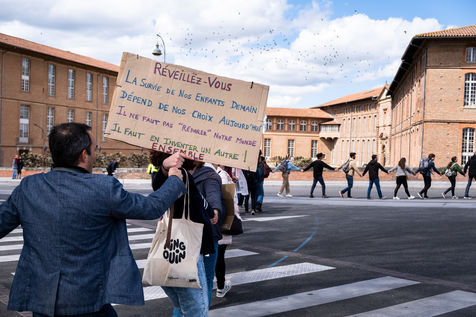 Réveillez-Vous
La Survie de Nos Enfants Demain
Dépend de Nos Choix Aujourd'hui
Il ne faut pas "Réparer" Notre Monde
Il faut en Inventer un Autre
Ensemble
PING
OUIN